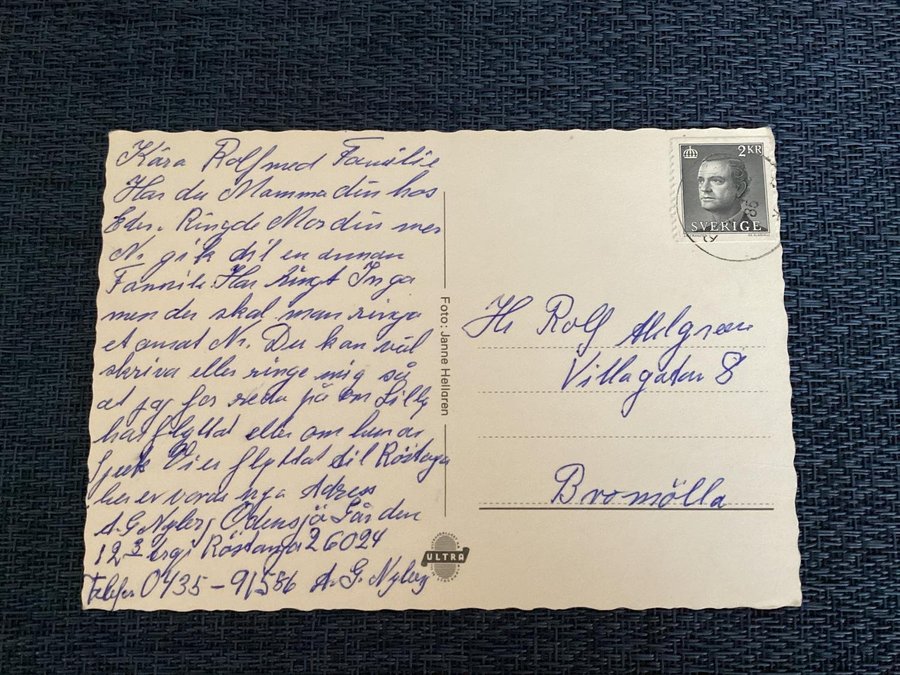 Kära Rolf med Familie
Har du Mamma din hos
Eder. Ringde Mordin men
Nr. gik til en annan
Famile. Har Ringt Inga
men der skal man ringe
et anat Nr. Du kan väl
skriva eller ringe mig så
at jag for reda på om Lilly
har flyttat eller om hun ar
Vi er flyttat til Röstånga
her er vorde nya Adress
A.G Nyberg Odensjö Gården
12 3 Röstånga 26024
Telefon 0435-91586 A.G. Nyberg
Foto: Janne Hellgren
ULTRA
2 KR
SVERIGE
86
Hr Rolf Ahlgren
Villagatan 8
Bromölla